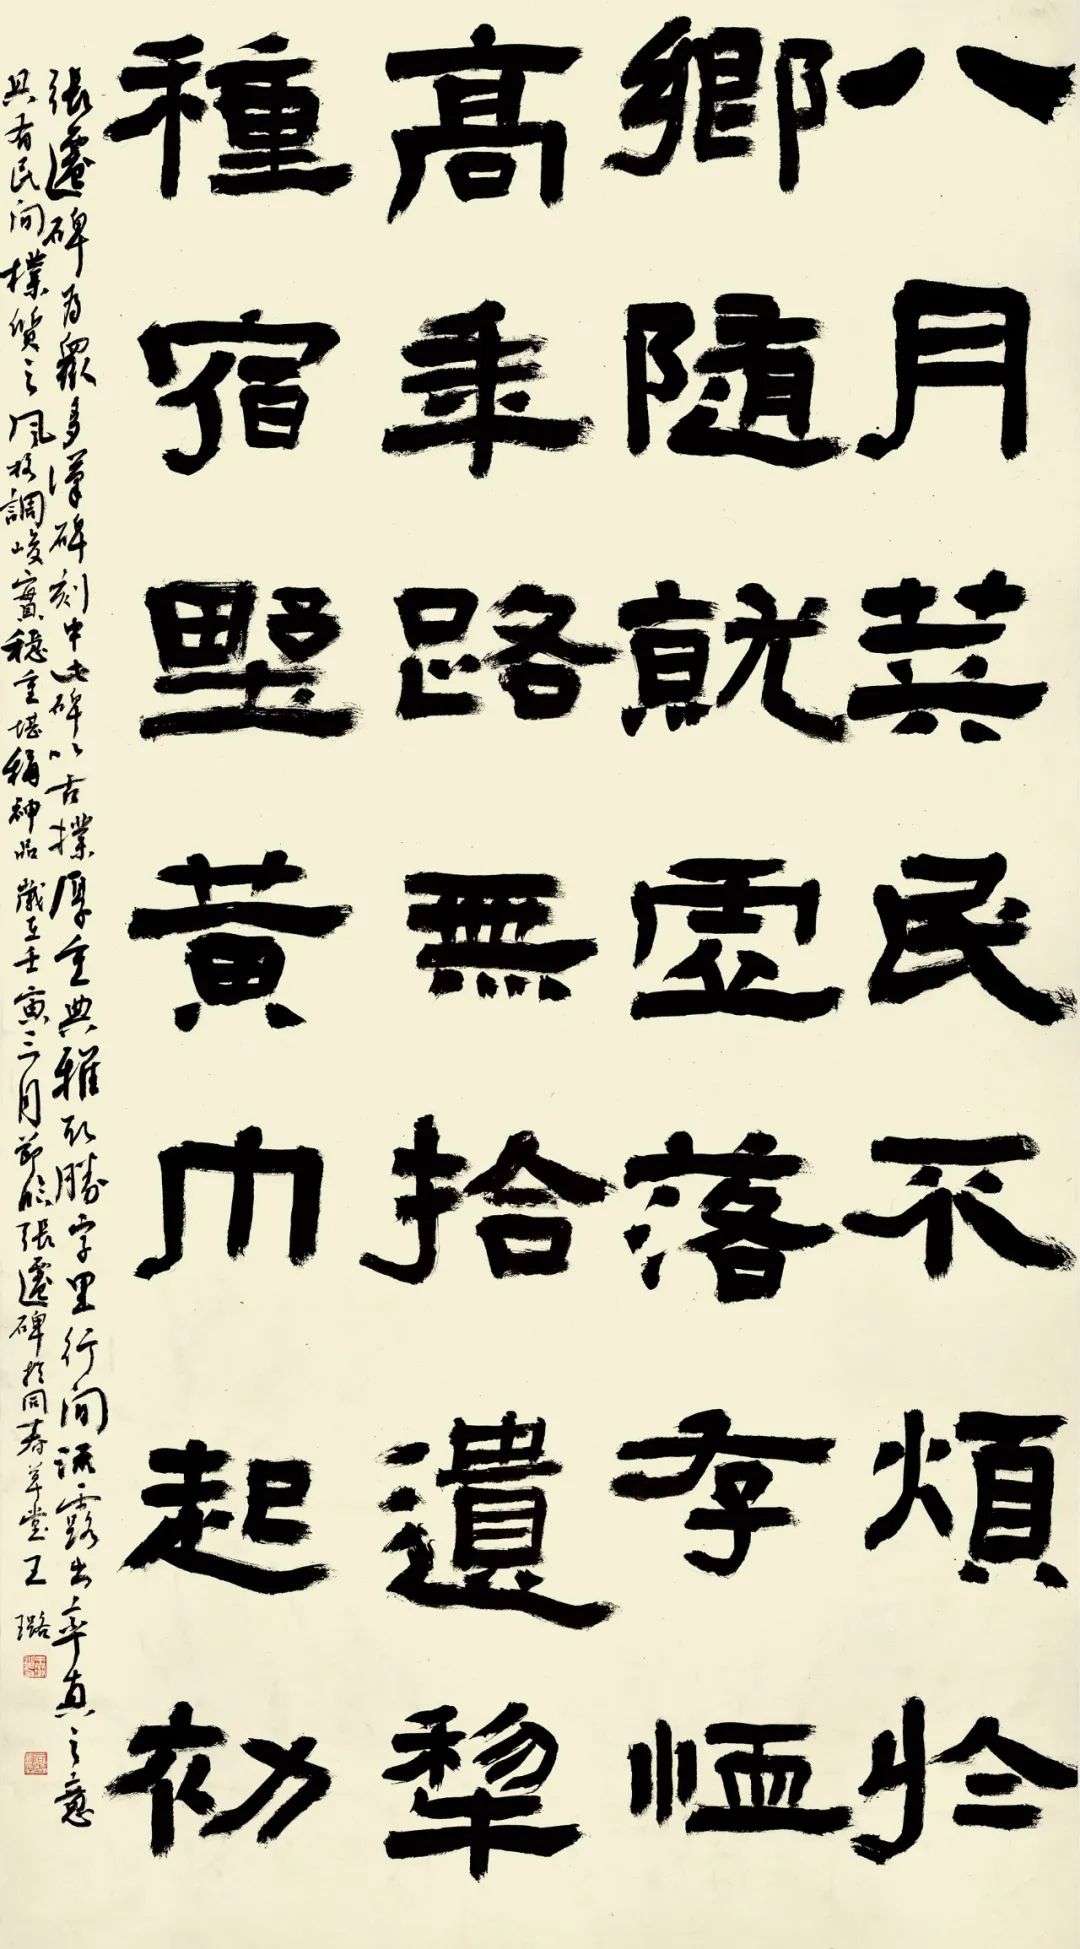 八月筭民不煩於
鄉隨就虛落存恤
高年路無拾遺犁
種宿野黃巾初起
張遷碑為眾多漢碑刻中此碑以古樸厚重典雅取勝字里行間流露出率真之意
具有民間樸質之風格調峻實穩重堪稱神品歲在壬寅三月節臨張遷碑於同春草堂王璐